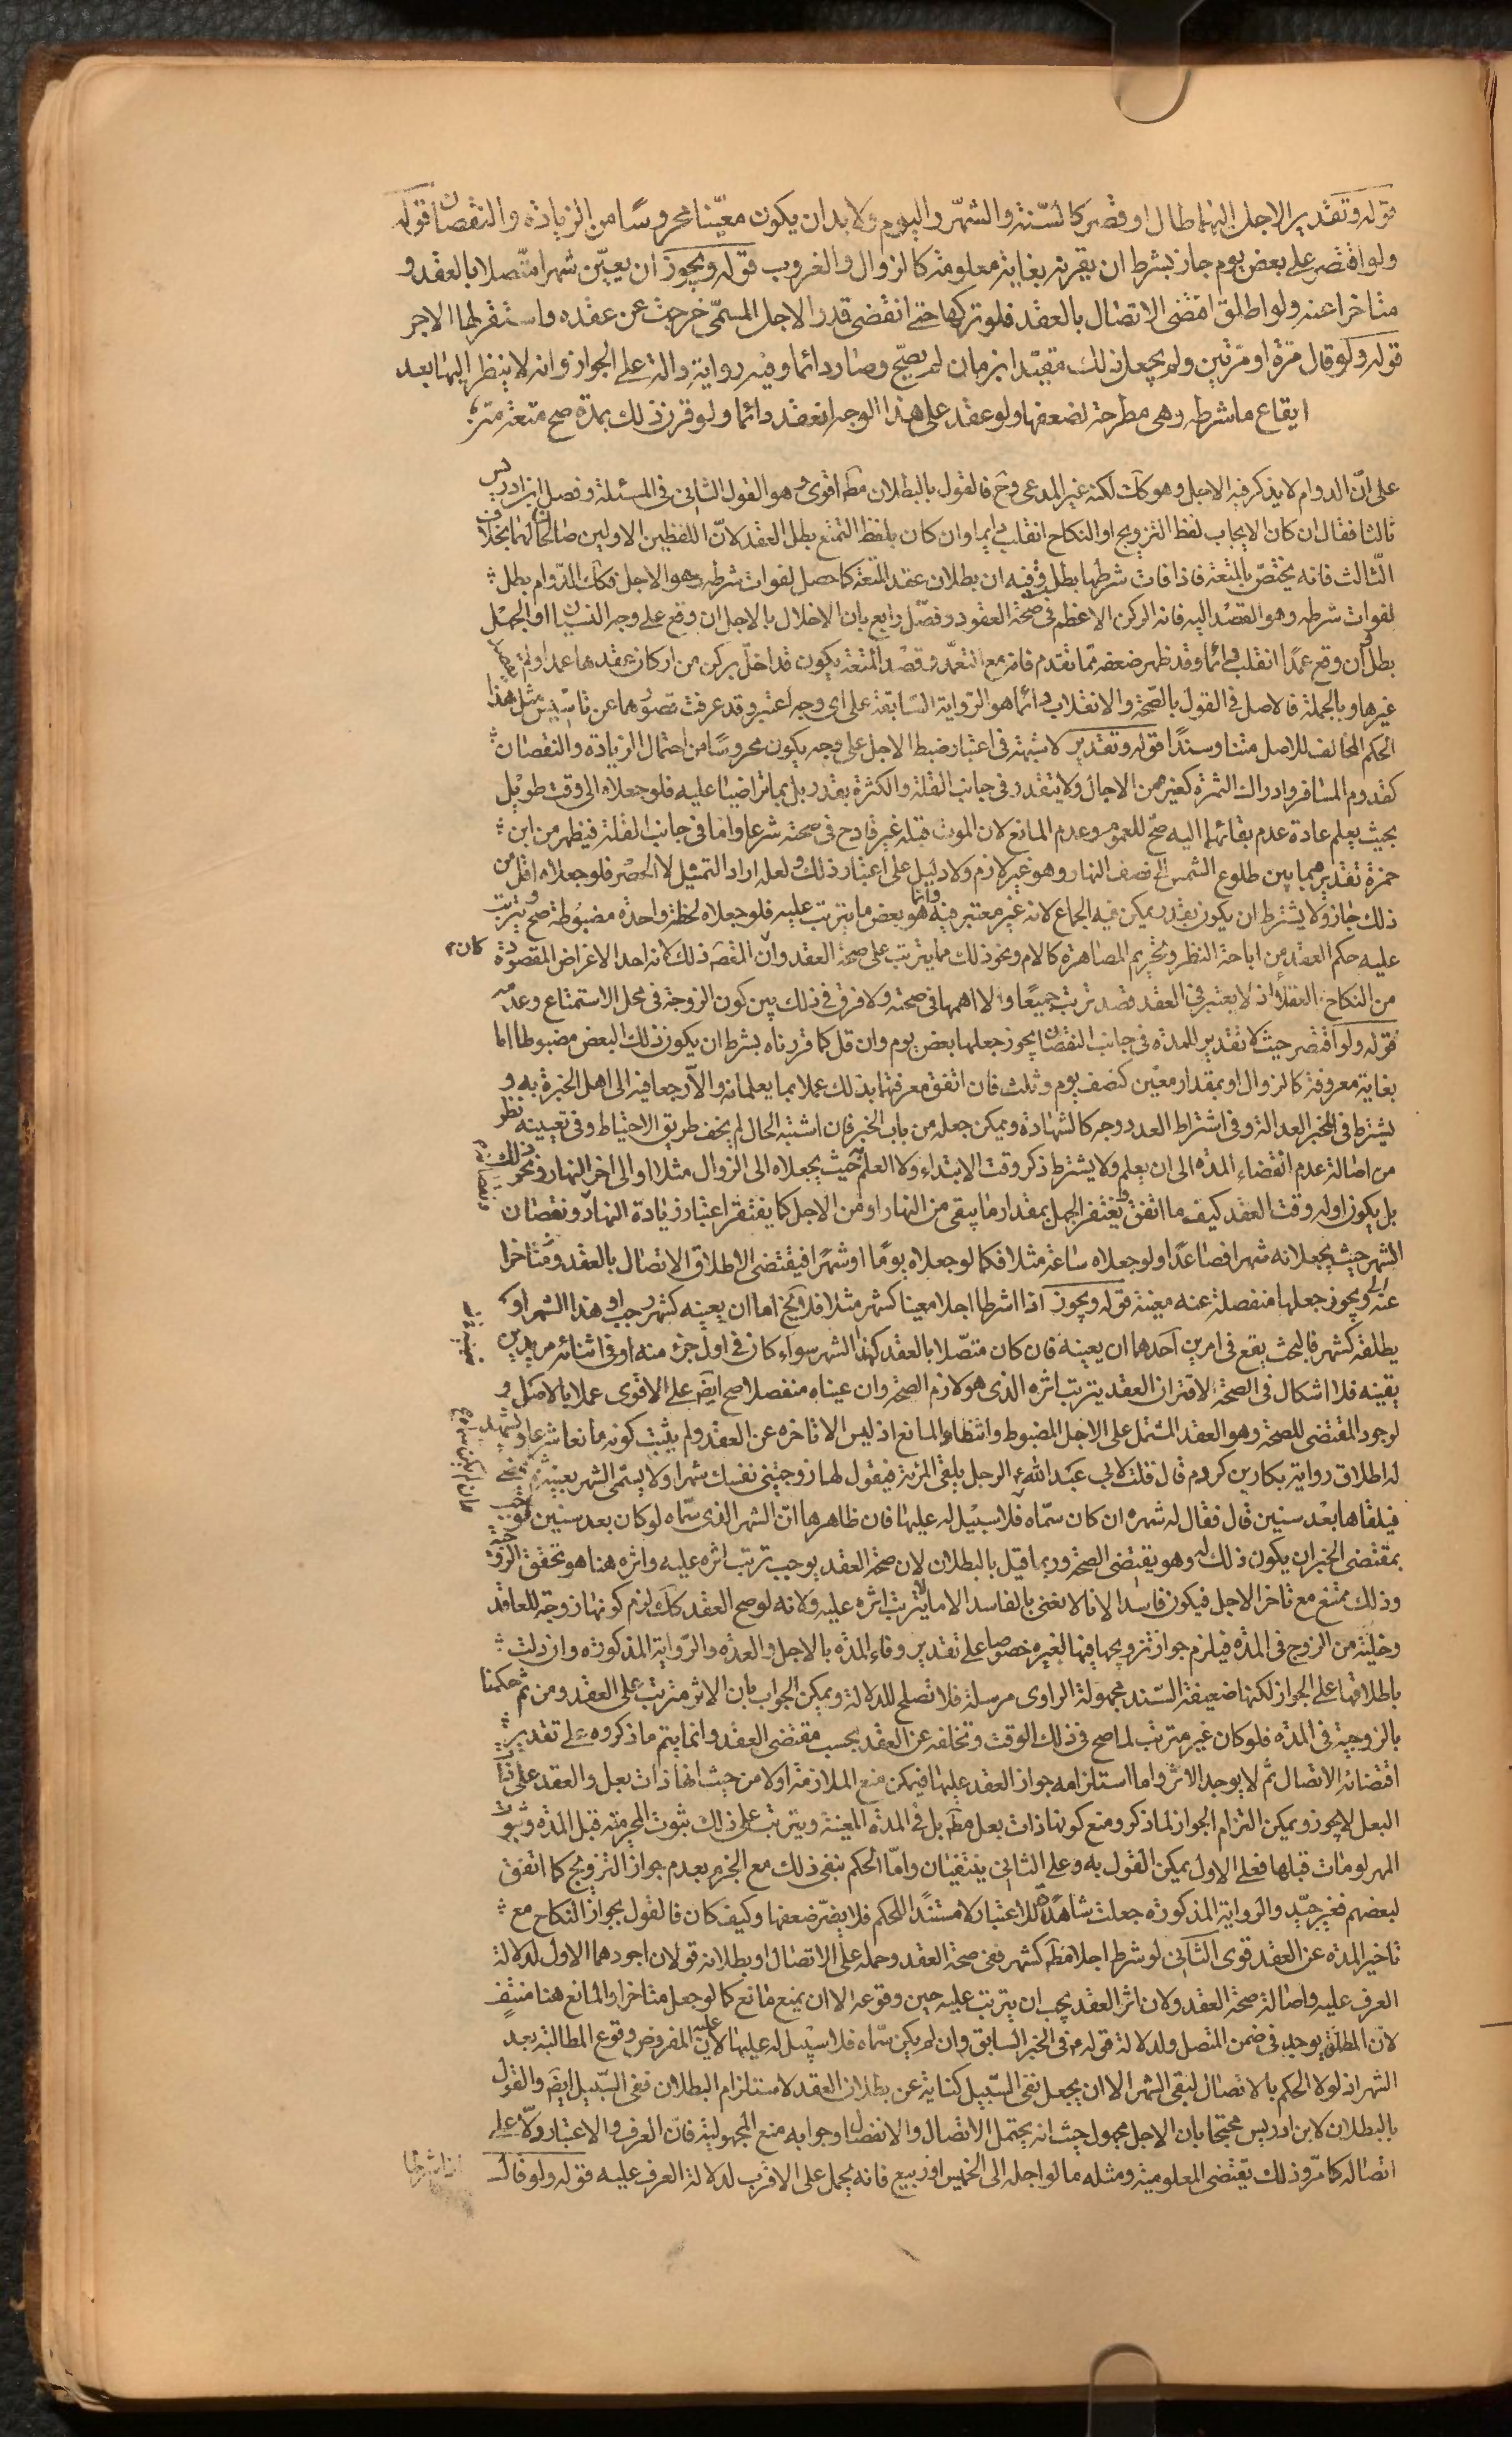 قوله وتقدير الاجل اليهما طال او قصر كالسنة والشهر واليوم ولا بد ان يكون معينا محروسا من الزيادة والنقصان قوله
ولو اقتصر على بعض يوم جاز بشرط ان يقرنه بغاية معلومة كالزوال والغروب قوله ويجوز ان يعين شهرا متصلا بالعقد و
متاخرا عنه ولو اطلق اقتضى الاتصال بالعقد فلو تركها حتى انقضى قدر الاجل المسمى خرجت عن عقده واستقر لها الاجر
قوله ولو قال مرة او مرتين ولم يجعل ذلك مقيدا بزمان لم يصح وصار دائما وفيه رواية دالة على الجواز وانه لا ينظر اليها بعد
ايقاع ما شرطه وهى مطرحة لضعفها ولو عقد على هذا الوجه انعقد دائما ولو قرن ذلك بمدة صح متعة
على ان الدوام لا يذكر فيه الاجل وهو كك لكنه غير المدعى وح فالقول بالبطلان مط اقوى وهو القول الثانى فى المسئلة وفصل ابن ادريس
ثالثا فقال ان كان الايجاب لفظ التزويج او النكاح انقلب دائما وان كان بلفظ التمتع بطل العقد لان اللفظين الاولين صالحان لهما بخلاف
الثالث فانه يختص بالمتعة فاذا فات شرطها بطل وفيه ان بطلان عقد المتعة كما حصل لفوات شرطه وهو الاجل فكك الدوام بطل
لفوات شرطه وهو القصد اليه فانه الركن الاعظم فى صحة العقود وفصل رابع بان الاخلال بالاجل ان وقع على وجه النسيان او الجهل
بطل وان وقع عمدا انقلب دائما وقد ظهر ضعفه مما تقدم فانه مع التعمد وقصد المتعة يكون قد اخل بركن من اركان عقدها عمدا ولم يقصد
غيرها وبالجملة فالاصل فى القول بالصحة والانقلاب دائما هو الرواية السابقة على اى وجه اعتبر وقد عرفت قصورها عن تاسيس مثل هذا
الحكم المخالف للاصل متنا وسندا قوله وتقدير لا شبهة فى اعتبار ضبط الاجل على وجه يكون محروسا من احتمال الزيادة والنقصان
كقدوم المسافر وادراك الثمرة كغيره من الاجال ولا يتقدر فى جانب القلة والكثرة بقدر بل بما تراضيا عليه فلو جعلاه الى وقت طويل
بحيث يعلم عادة عدم بقائهما اليه صح للعموم وعدم المانع لان الموت قبله غير قادح فى صحته شرعا واما فى جانب القلة فيظهر من ابن
حمزة تقديرهما بما بين طلوع الشمس الى نصف النهار وهو غير لازم ولا دليل على اعتبار ذلك ولعله اراد التمثيل لا الحصر فلو جعلاه اقل من
ذلك جاز ولا يشترط ان يكون بقدر يمكن فيه الجماع لانه غير معتبر فيه وانما هو بعض ما يترتب عليه فلو جعلاه لحظة واحدة مضبوطة صح وترتب
عليه حكم العقد من اباحة النظر وتحريم المصاهرة كالام ونحو ذلك مما يترتب على صحة العقد وان القصد ذلك لانه احد الاغراض المقصودة
كان
من النكاح العقد اذ لا يعتبر فى العقد قصد ترتب جميعا والا اهمها فى صحته ولا فرق فى ذلك بين كون الزوجة فى محل الاستمتاع وعدمه
قوله ولو اقتصر حيث لا تقدير للمدة فى جانب النقصان يجوز جعلها بعض يوم وان قل كما قررناه بشرط ان يكون ذلك البعض مضبوطا اما
بغاية معروفة كالزوال او بمقدار معين كنصف يوم وثلث فان اتفق معرفتهما بذلك عملا بما يعلمانه والا رجعا فيه الى اهل الخبرة به و
يشترط فى المخبر العدالة وفى اشتراط العدد وجه كالشهادة ويمكن جعله من باب الخبر فان اشتبه الحال لم يخف طريق الاحتياط وفى تعيينه نظر
من اصالة عدم انقضاء المدة الى ان يعلم ولا يشترط ذكر وقت الابتداء ولا العلم به حيث يجعلاه الى الزوال مثلا او الى اخر النهار ونحو ذلك
بل يكون اوله وقت العقد كيف ما اتفق ويغتفر الجهل بمقدار ما يبقى من النهار او من الاجل كما يغتفر اعتبار زيادة النهار ونقصان
الشهر حيث يجعلانه شهرا فصاعدا ولو جعلاه ساعة مثلا فكما لو جعلاه يوما او شهرا فيقتضى الاطلاق الاتصال بالعقد ومتاخرا
عنه ويجوز جعلها منفصلة عنه معينة قوله ويجوز اذا اشرطا اجلا معينا كشهر مثلا فلا يخ اما ان يعينه كشهر رجب او هذا الشهر او
يطلقه كشهر فالبحث يقع فى امرين احدهما ان يعينه فان كان متصلا بالعقد كهذا الشهر سواء كان فى اول جزء منه او فى اثنائه مريدين
بقيته فلا اشكال فى الصحة لاقتران العقد بترتب اثره الذى هو لازم الصحة وان عيناه منفصلا صح ايض على الاقوى عملا بالاصل و
لوجود المقتضى للصحة وهو العقد المشتمل على الاجل المضبوط وانتفاء المانع اذ ليس الا تاخره عن العقد ولم يثبت كونه مانعا شرعا ويشهد
له اطلاق رواية بكار بن كردم قال قلت لابى عبد الله ع الرجل يلقى المرئة فيقول لها زوجينى نفسك شهرا ولا يسمى الشهر بعينه ثم يمضى
فيلقاها بعد سنين قال فقال له شهره ان كان سماه فلا سبيل له عليها فان ظاهرها ان الشهر الذى سماه لو كان بعد سنين
بمقتضى الخبر ان يكون ذلك له وهو يقتضى الصحة وربما قيل بالبطلان لان صحة العقد يوجب ترتب اثره عليه واثره هنا هو تحقق الزوجية
وذلك ممتنع مع تاخر الاجل فيكون فاسدا لانا لا نعنى بالفاسد الا ما لا يترتب اثره عليه ولانه لو صح العقد كك لزم كونها زوجة للعاقد
وخلية من الزوج فى المدة فيلزم جواز تزويجها فيها لغيره خصوصا على تقدير وفاء المدة بالاجل والعدة والرواية المذكورة وان دلت
باطلاقها على الجواز لكنها ضعيفة السند مجهولة الراوى مرسلة فلا تصلح للدلالة ويمكن الجواب بان الاثر مترتب على العقد ومن ثم حكمنا
بالزوجية فى المدة فلو كان غير مترتب لما صح فى ذلك الوقت وتخلفه عن العقد بحسب مقتضى العقد وانما يتم ما ذكروه على تقدير
اقتضائه الاتصال ثم لا يوجد الاثر واما استلزامه جواز العقد عليها فيمكن منع الملازمة اولا من حيث انها ذات بعل والعقد على ذات
البعل لا يجوز ويمكن التزام الجواز لما ذكر ومنع كونها ذات بعل مط بل فى المدة المعينة ويترتب على ذلك ثبوت المحرمية قبل المدة وثبوت
المهر لو مات قبلها فعلى الاول يمكن القول به وعلى الثانى ينتفيان واما الحكم بنفى ذلك مع الجزم بعدم جواز التزويج كما اتفق
لبعضهم فغير جيد والرواية المذكورة جعلت شاهدا للاعتبار لا مستندا للحكم فلا يضر ضعفها وكيف كان فالقول بجواز النكاح مع
تاخير المدة عن العقد قوى الثانى لو شرط اجلا مط كشهر ففى صحة العقد وحمله على الاتصال او بطلانه قولان اجودهما الاول لدلالة
العرف عليه واصالة صحة العقد ولان اثر العقد يجب ان يترتب عليه حين وقوعه الا ان يمنع مانع كما لو جعل متاخرا والمانع هنا منتف
لان المطلق يوجد فى ضمن المتصل ولدلالة قوله ع فى الخبر السابق وان لم يكن سماه فلا سبيل له عليها لان المفروض وقوع المطالبة بعد
الشهر اذ لولا الحكم بالاتصال لبقى الشهر الا ان يجعل نفى السبيل كناية عن بطلان العقد لاستلزام البطلان نفى السبيل ايض والقول
بالبطلان لابن ادريس محتجا بان الاجل مجهول حيث انه يحتمل الاتصال والانفصال وجوابه منع المجهولية فان العرف والاعتبار دلا على
اتصاله كما مر وذلك يقتضى المعلومية ومثله ما لو اجله الى الخميس او ربيع فانه يحمل على الاقرب لدلالة العرف عليه قوله ولو قال